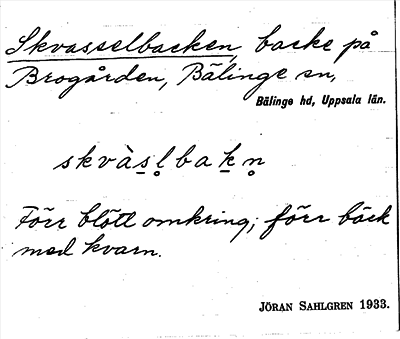 Skvasselbacken, backe på
Brogården, Bälinge sn,
Bälinge hd, Uppsala län.
skvàs̱l̥baḵn̥
Förr blött omkring; förr bäck
med kvarn.
JÖRAN SAHLGREN 1933.